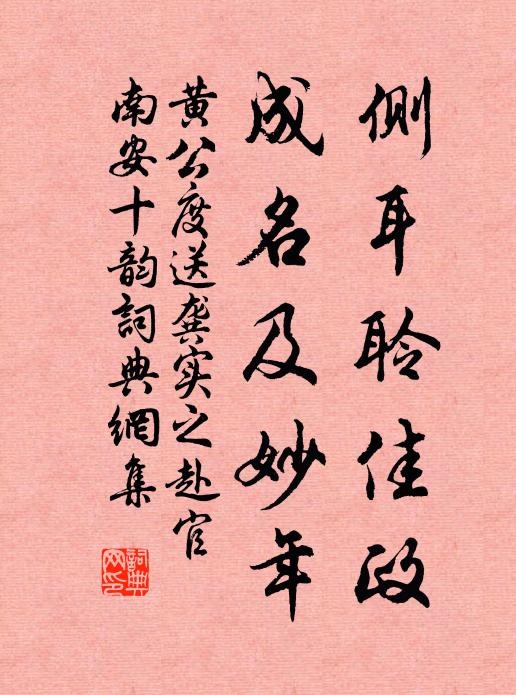 侧耳聆佳政
成名及妙年
黄公度送龚实之赴官
南安十韵词典網集
詞典網印